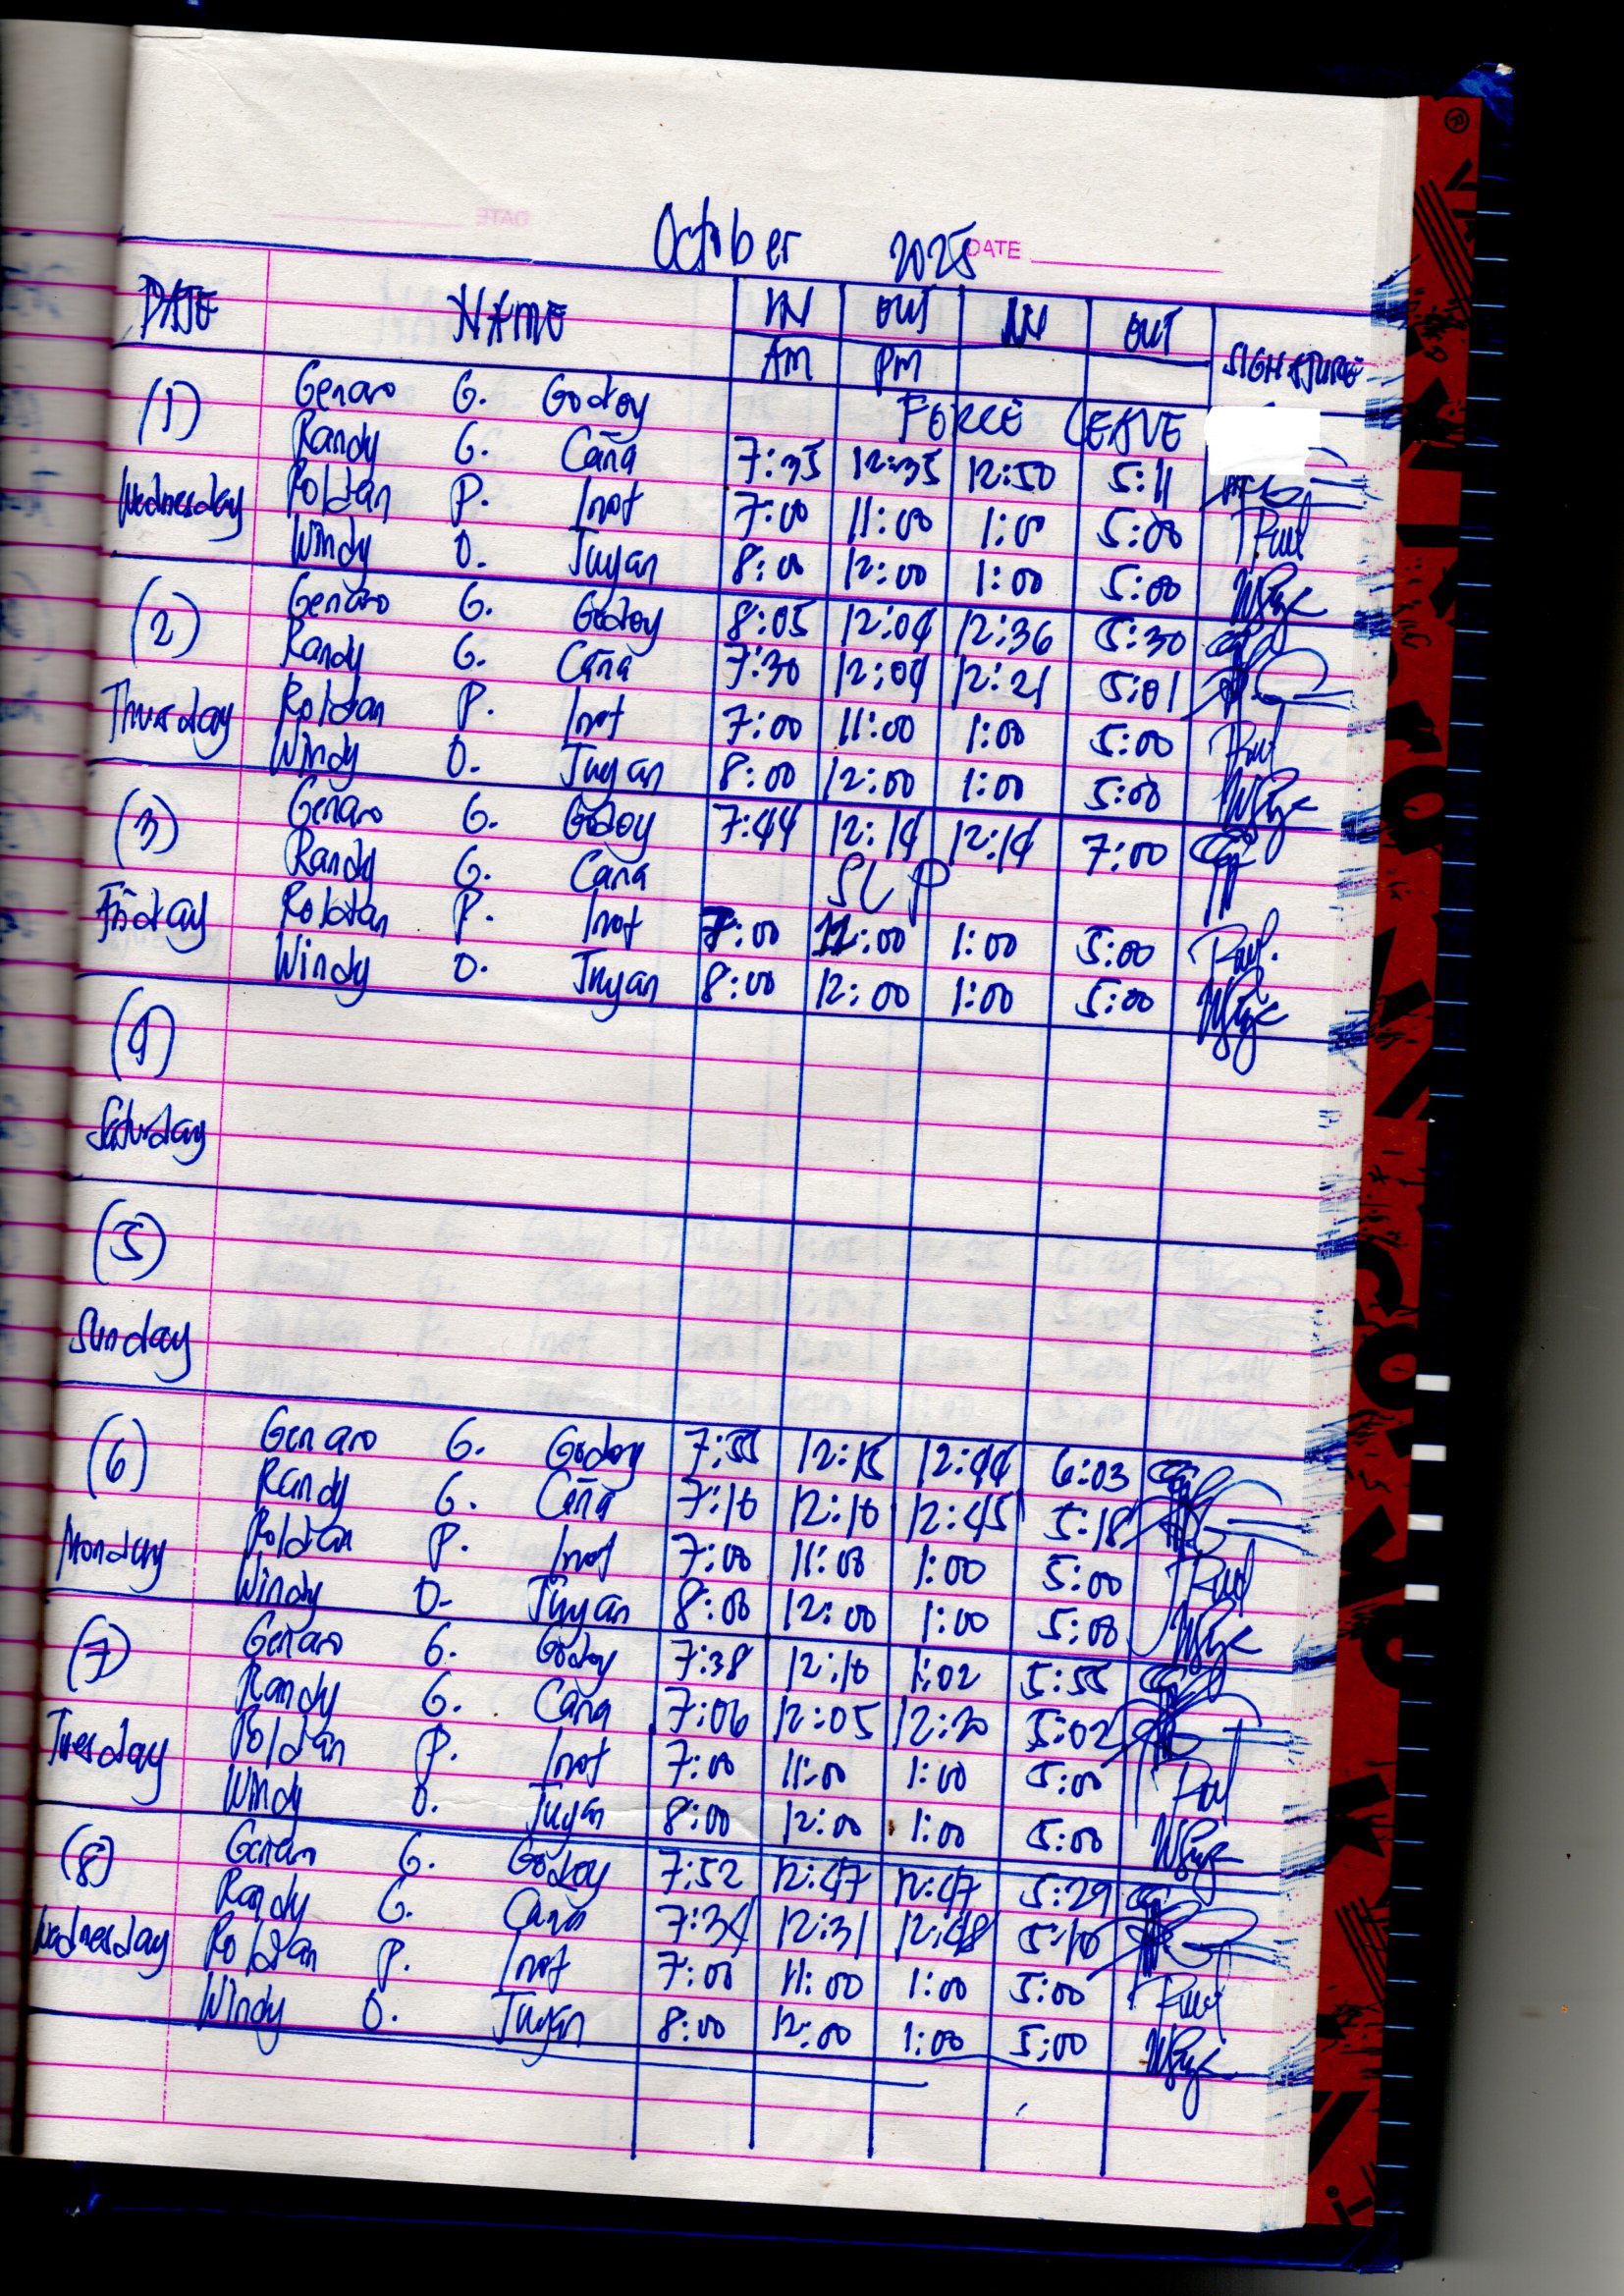 October 2025 DATE
DATE NAME IN OUT IN OUT SIGNATURE
AM PM
(1) Genaro G. Godoy FORCE LEAVE
Randy G. Caña 7:35 12:35 12:50 5:11
Wednesday Roldan P. Inot 7:00 11:00 1:00 5:00
Windy O. Tuyan 8:00 12:00 1:00 5:00
(2) Genaro G. Godoy 8:05 12:04 12:36 5:30
Randy G. Caña 7:30 12:04 12:21 5:01
Thursday Roldan P. Inot 7:00 11:00 1:00 5:00
Windy O. Tuyan 8:00 12:00 1:00 5:00
(3) Genaro G. Godoy 7:44 12:14 12:14 7:00
Randy G. Caña SLP
Friday Roldan P. Inot 7:00 11:00 1:00 5:00
Windy O. Tuyan 8:00 12:00 1:00 5:00
(4)
Saturday
(5)
Sunday
(6) Genaro G. Godoy 7:55 12:15 12:44 6:03
Randy G. Caña 7:10 12:10 12:45 5:18
Monday Roldan P. Inot 7:00 11:00 1:00 5:00
Windy O. Tuyan 8:00 12:00 1:00 5:00
(7) Genaro G. Godoy 7:38 12:10 1:02 5:55
Randy G. Caña 7:06 12:05 12:20 5:02
Tuesday Roldan P. Inot 7:00 11:00 1:00 5:00
Windy O. Tuyan 8:00 12:00 1:00 5:00
(8) Genaro G. Godoy 7:52 12:47 12:47 5:29
Randy G. Caña 7:34 12:31 12:48 5:10
Wednesday Roldan P. Inot 7:00 11:00 1:00 5:00
Windy O. Tuyan 8:00 12:00 1:00 5:00